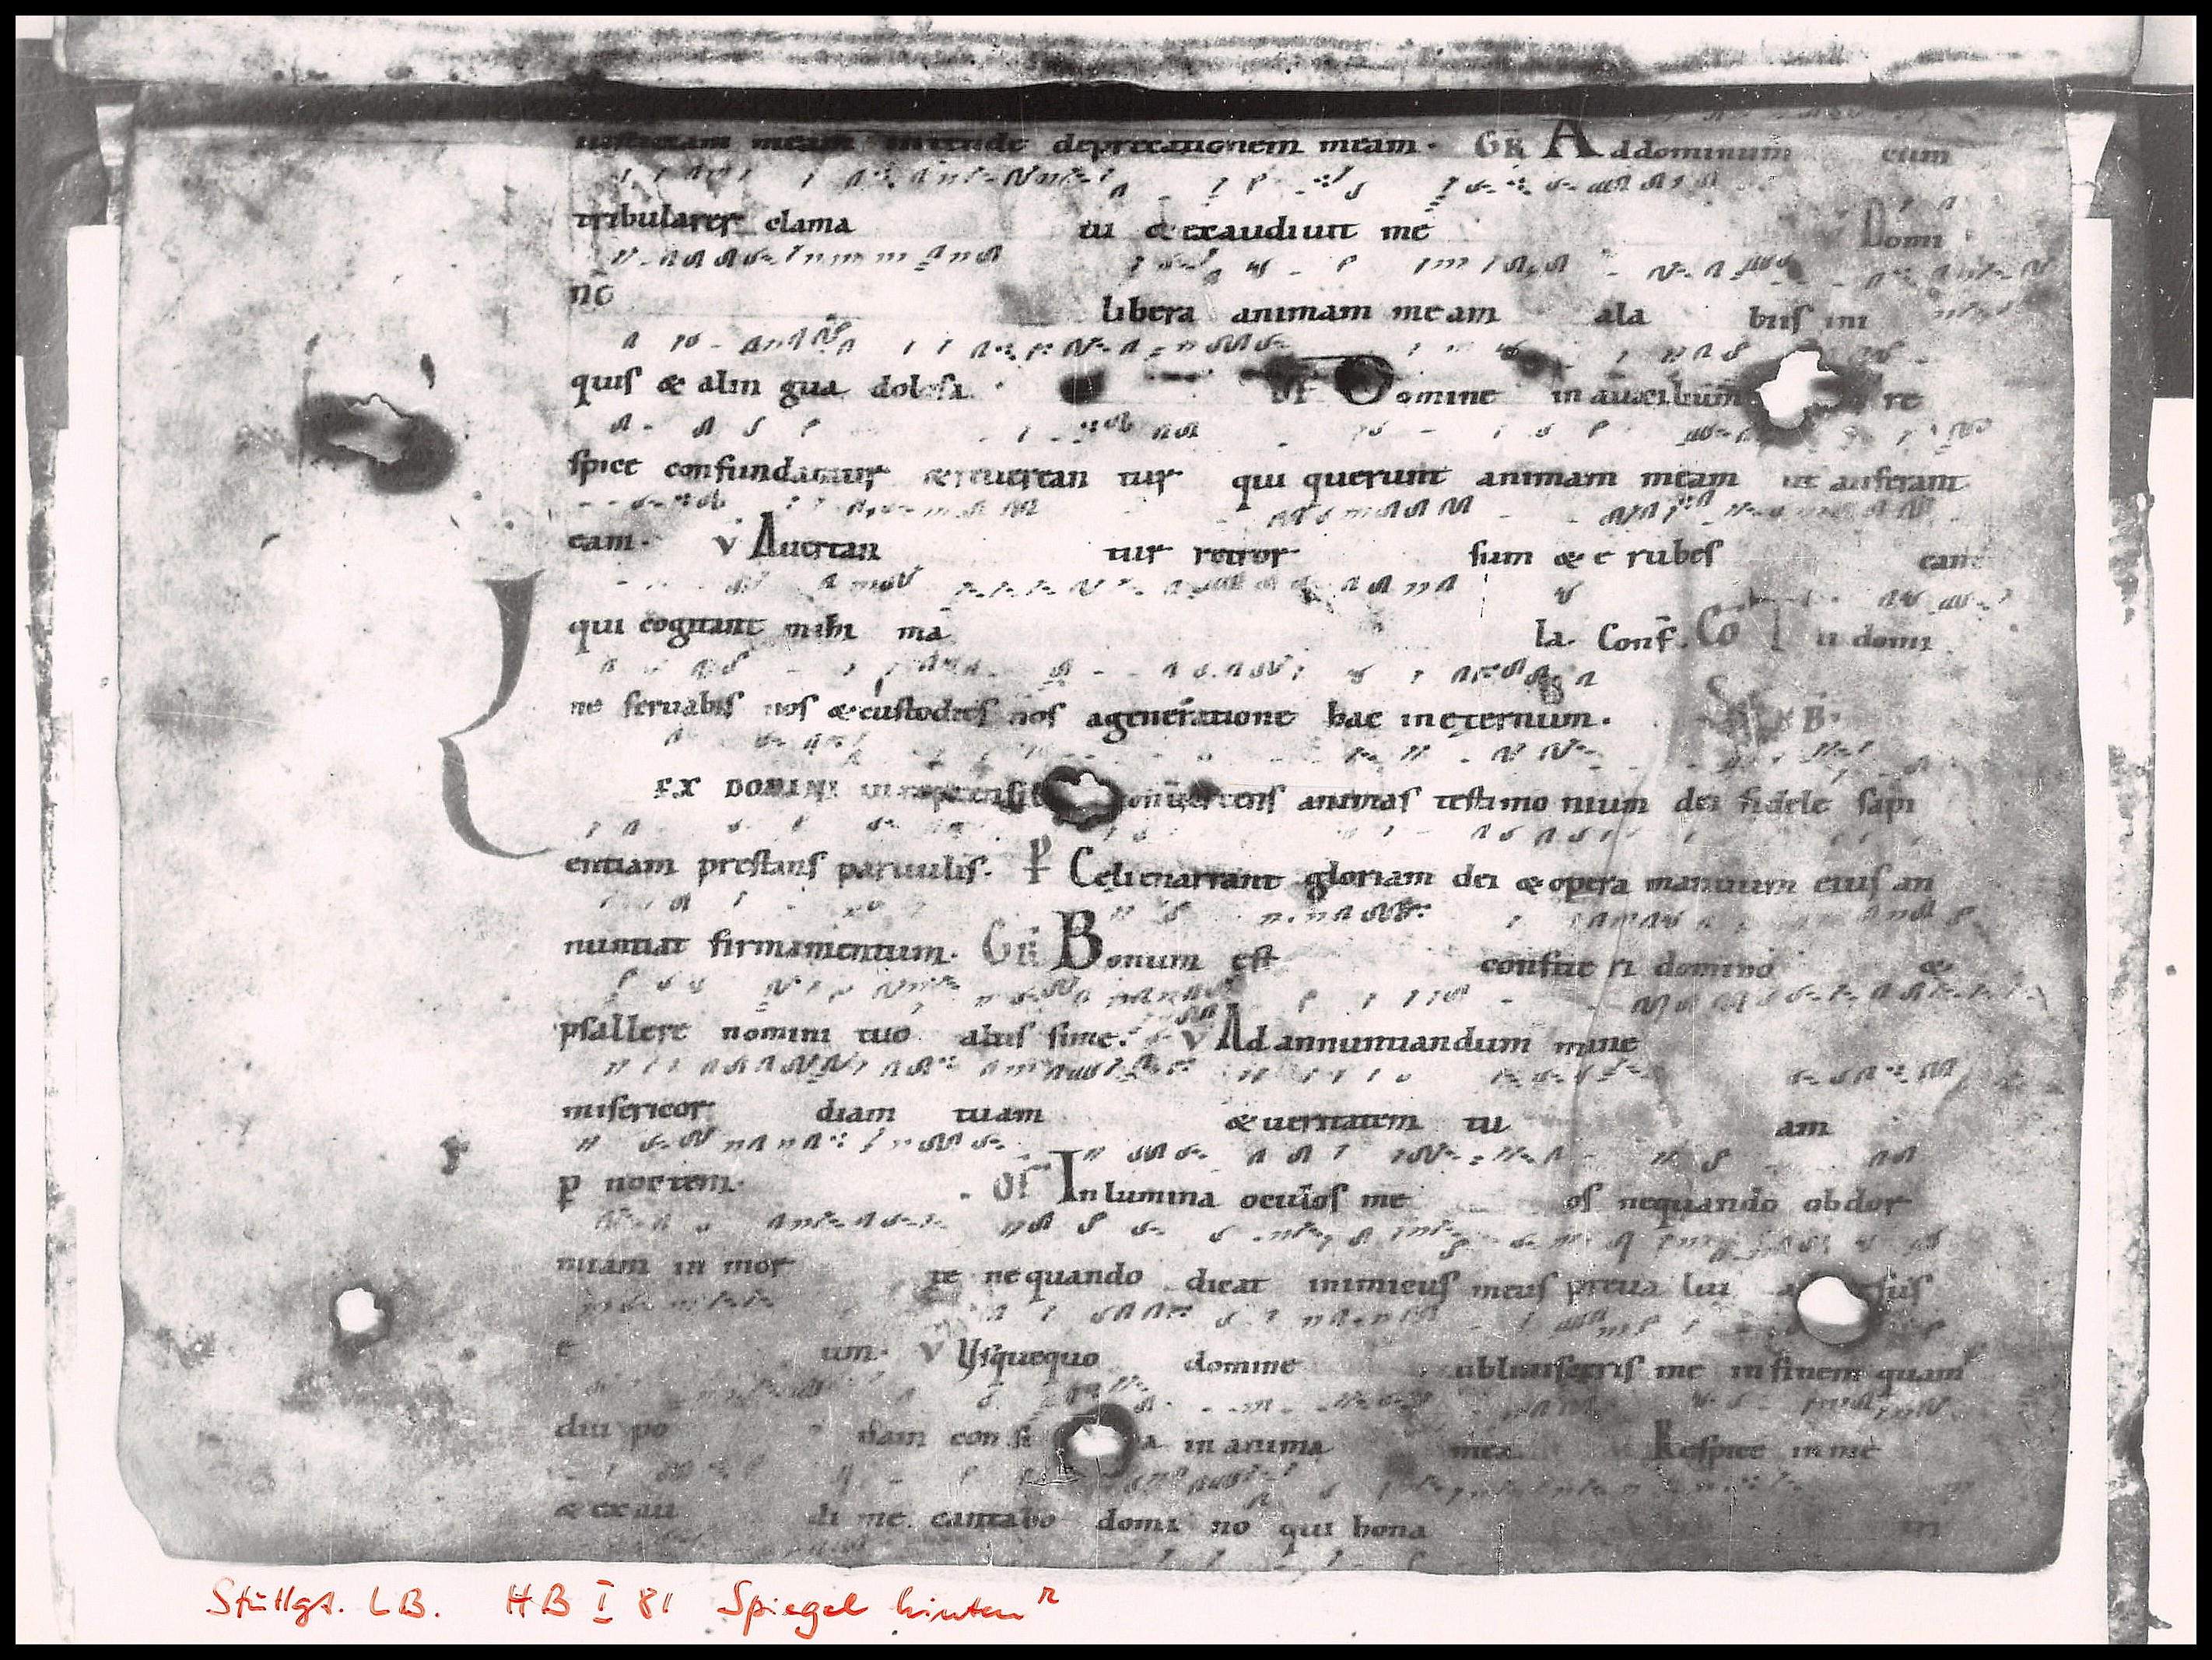 iusticiam meam intende deprecationem meam. GR Ad dominum cum
tribularer clama tu & exaudiuit me v Domi
ne libera animam meam ala biis ini
quis & alin gua dolosa. Of Domine in auxilium re
spice confundantur & reuerean tur qui querunt animam meam ut auferant
eam. v Auertan tur retror sum & e rubes cant
qui cogitant mihi ma la. Conf. Co Tu domi
ne seruabis nos & custodies nos a generatione hac in eternum.
EX DOMINI inreprensib conuertens animas testimo nium dei fidele sapi
entiam prestans paruulis. P Celi enarrant gloriam dei & opera manuum eius an
nuntiat firmamentum. GR Bonum est confite ri domino &
psallere nomini tuo altis sime. v Ad annuntiandum mane
misericor diam tuam & ueritatem tu am
p noctem. Of Inlumina oculos me os nequando obdor
miam in mor te nequando dicat inimicus meus preua lui a sus
e um. v Usquequo domine obliuisceris me in finem quam
diu po nam con si a in anima mea Respice in me
& exau di me cantabo domi no qui bona
Stuttgt. LB. HB I 81 Spiegel hinten r